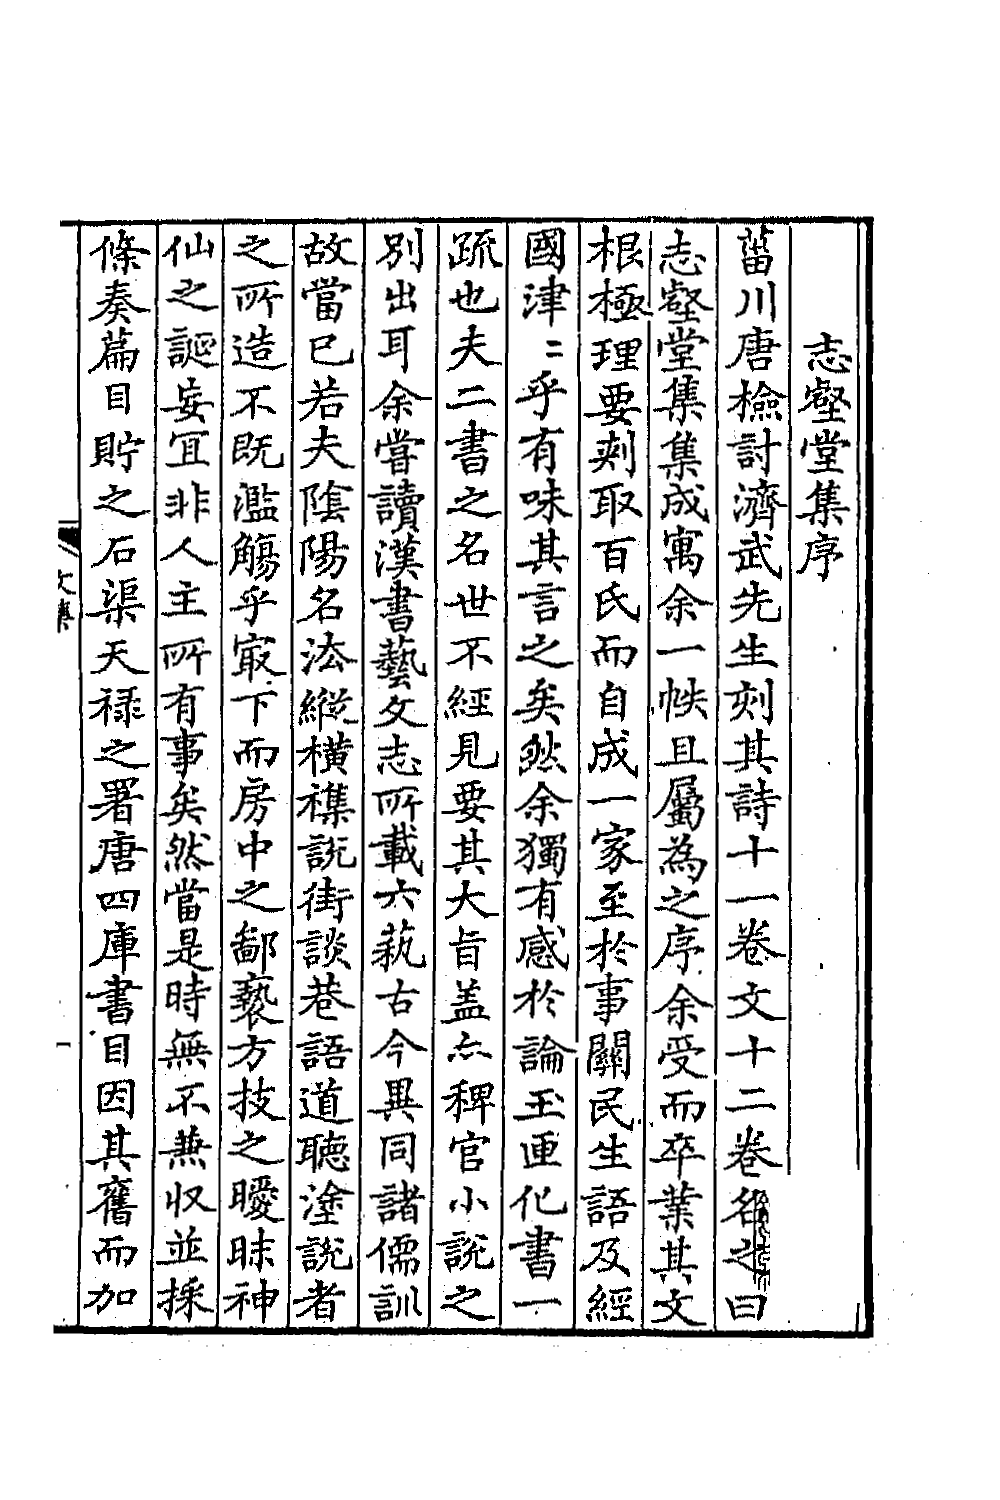 志壑堂集序
菑川唐檢討濟武先生刻其詩十一卷文十二卷名之曰
志壑堂集集成寓余一帙且屬為之序余受而卒業其文
根極理要刺取百氏而自成一家至於事關民生語及經
國津〻乎有味其言之矣然余獨有感於論玉匣化書一
䟽也夫二書之名世不經見要其大旨盖亦稗官小說之
別出耳余嘗讀漢書藝文志所載六蓺古今異同諸儒訓
故當已若夫陰陽名法縱橫襍說街談巷語道聽塗說者
之所造不既濫觴乎㝡下而房中之鄙褻方技之曖昧神
仙之誕妄宜非人主所有事矣然當是時無不兼収並採
條奏篇目貯之石渠天祿之署唐四庫書目因其舊而加
文集
一